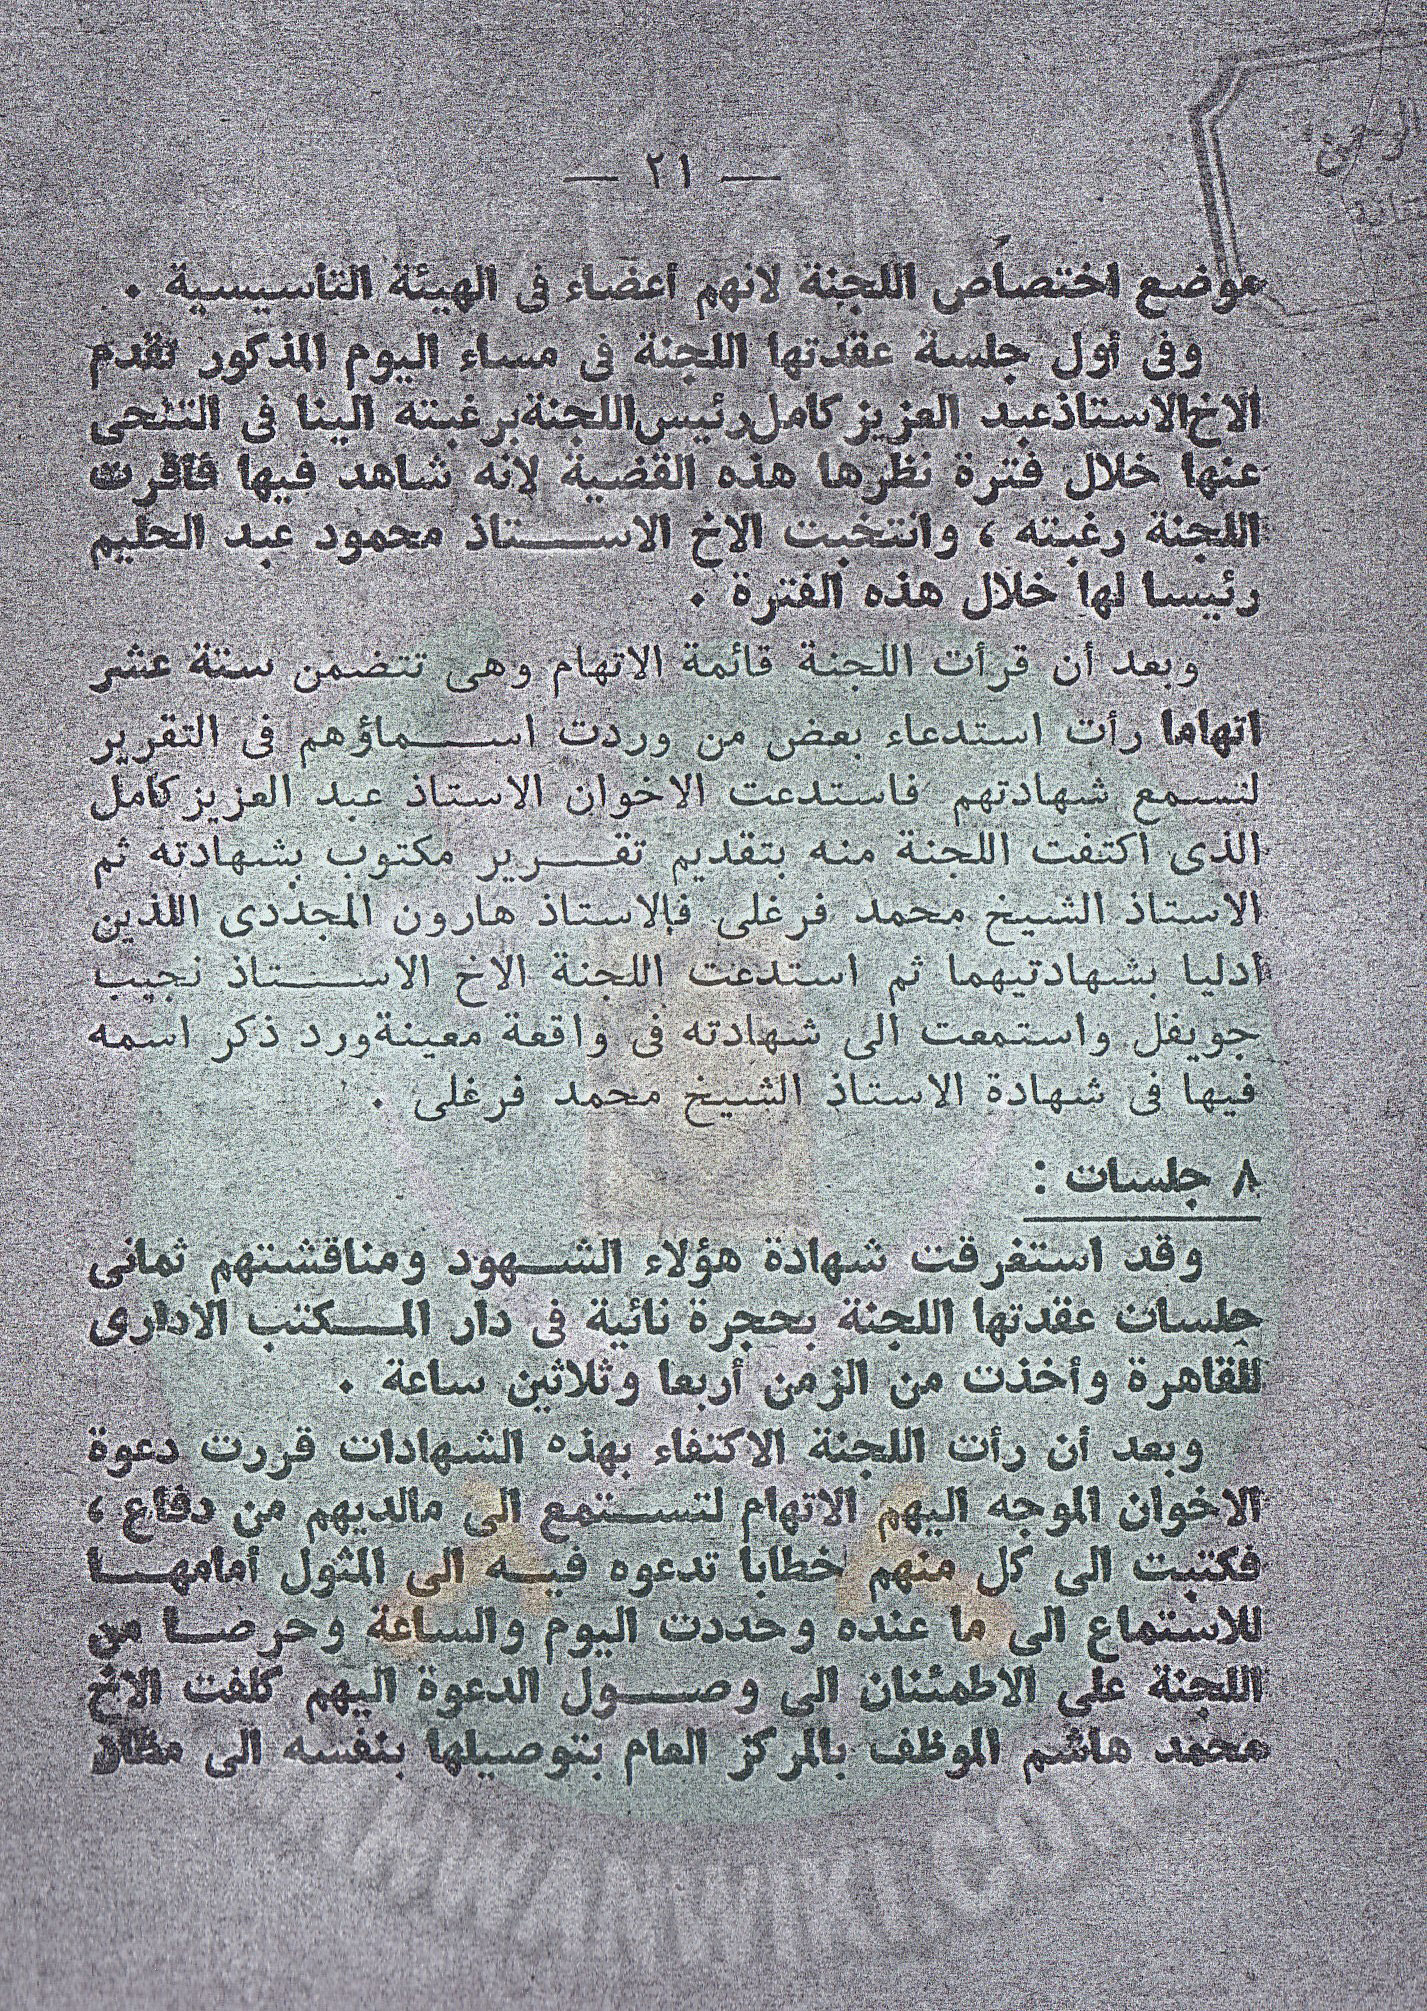 — ٢١ —
موضع اختصاص اللجنة لانهم أعضاء فى الهيئة التأسيسية .
وفى أول جلسة عقدتها اللجنة فى مساء اليوم المذكور تقدم
الاخ الاستاذ عبد العزيز كامل رئيس اللجنة برغبته الينا فى التنحى
عنها خلال فترة نظرها هذه القضية لانه شاهد فيها فأقرت
اللجنة رغبته ، وانتخبت الاخ الاستاذ محمود عبد الحليم
رئيسا لها خلال هذه الفترة .
وبعد أن قرأت اللجنة قائمة الاتهام وهى تتضمن ستة عشر
اتهاما رأت استدعاء بعض من وردت اسماؤهم فى التقرير
لتسمع شهادتهم فاستدعت الاخوان الاستاذ عبد العزيز كامل
الذى اكتفت اللجنة منه بتقديم تقرير مكتوب بشهادته ثم
الاستاذ الشيخ محمد فرغلى فالاستاذ هارون المجددى اللذين
أدليا بشهادتيهما ثم استدعت اللجنة الاخ الاستاذ نجيب
جويفل واستمعت الى شهادته فى واقعة معينة ورد ذكر اسمه
فيها فى شهادة الاستاذ الشيخ محمد فرغلى .
٨ جلسات :
وقد استغرقت شهادة هؤلاء الشهود ومناقشتهم ثمانى
جلسات عقدتها اللجنة بحجرة نائية فى دار المكتب الادارى
للقاهرة وأخذت من الزمن أربعا وثلاثين ساعة .
وبعد أن رأت اللجنة الاكتفاء بهذه الشهادات قررت دعوة
الاخوان الموجه اليهم الاتهام لتستمع الى مالديهم من دفاع ،
فكتبت الى كل منهم خطابا تدعوه فيه الى المثول أمامها
للاستماع الى ما عنده وحددت اليوم والساعة وحرصا من
اللجنة على الاطمئنان الى وصول الدعوة اليهم كلفت الاخ
محمد هاشم الموظف بالمركز العام بتوصيلها بنفسه الى مظان